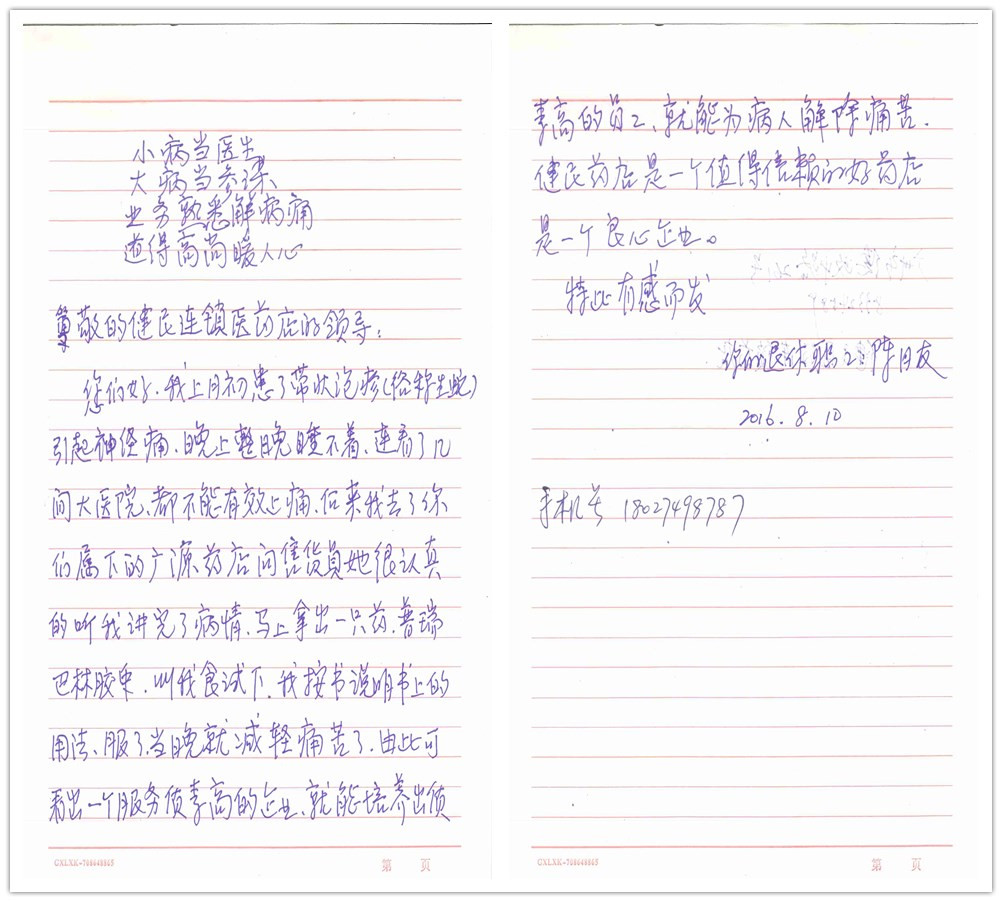 小病当医生
大病当参谋
业务熟悉解病痛
道得高尚暖人心
尊敬的健民连锁医药店的领导：
您们好.我上月初患了带状泡疹(俗称生蛇)
引起神经痛.晚上整晚睡不着、连看了几
间大医院、都不能有效止痛.后来我去了你
们属下的广源药店问售货員她很认真
的听我讲完了病情、马上拿出一只药.普瑞
巴林胶囊.叫我食试下.我按书说明书上的
用法、服了.当晚就减轻痛苦了.由此可
看出一个服务质素高的企业、就能培养出质
素高的员工、就能为病人解除痛苦.
健民药店是一个值得信赖的好药店
是一个良心企业。
特此有感而发
你的退休职工：陈月友
2016.8.10
手机号 18027498787
GXLXK-708648865 第 页
GXLXK-708648865 第 页